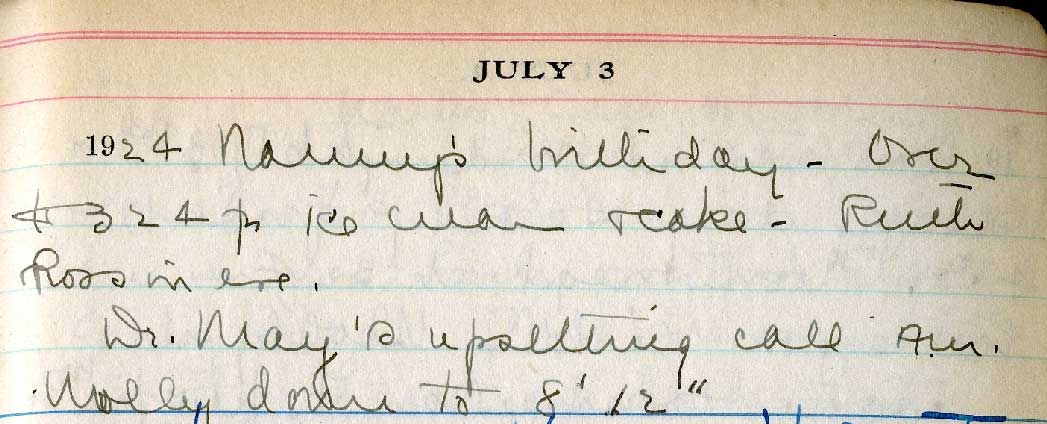 JULY 3
1924 Nanny's birthday - Over
to 324 for ice cream & cake - Ruth
Ross in eve.
Dr. May's upsetting call A.M.
Molly down to 8' 12"